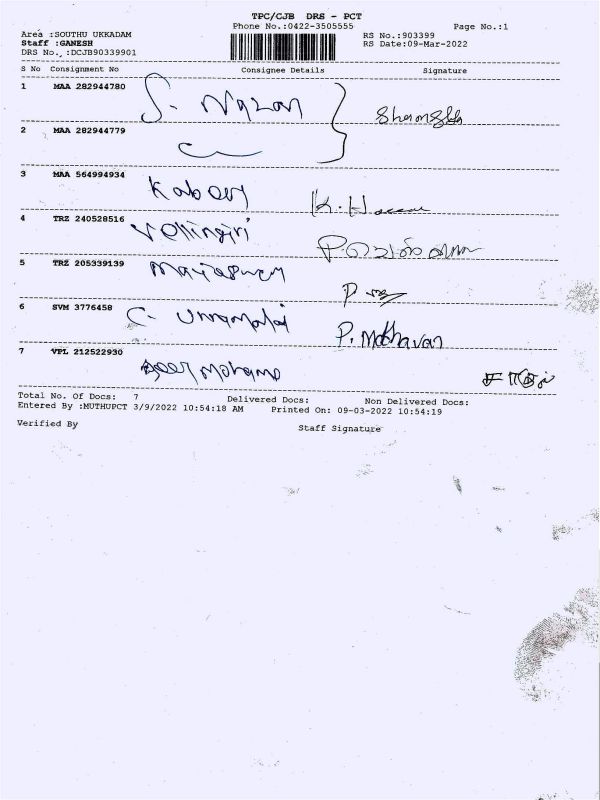 TPC/CJB DRS - PCT
Phone No.:0422-3505555 Page No.:1
Area :SOUTHU UKKADAM RS No.:903399
Staff :GANESH RS Date:09-Mar-2022
DRS No., :DCJB90339901
S No Consignment No Consignee Details Signature
1 MAA 282944780
2 MAA 282944779
3 MAA 564994934
4 TRZ 240528516 Vellingiri
5 TRZ 205339139
6 SVM 3776458 P. Madhavan
7 VPL 212522930
Total No. Of Docs: 7 Delivered Docs: Non Delivered Docs:
Entered By :MUTHUPCT 3/9/2022 10:54:18 AM Printed On: 09-03-2022 10:54:19
Verified By Staff Signature